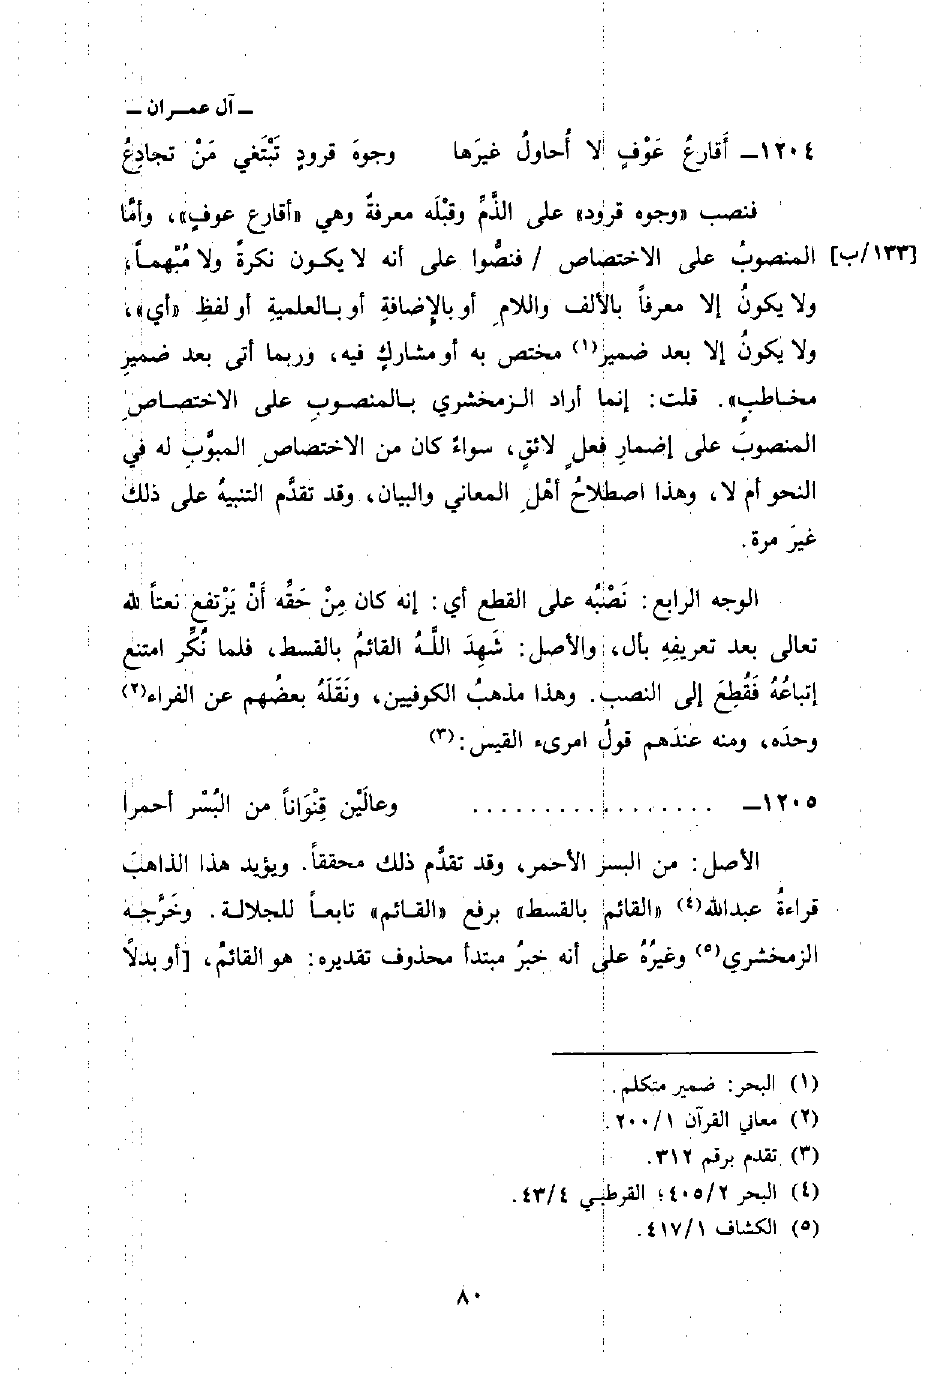 ـ آل عمـران ـ
١٢٠٤ـ أَقارعُ عَوْفٍ لا أُحاولُ غيرَها وجوهَ قرودٍ تَبْتَغي مَنْ تجادِعُ
فنصب «وجوه قرود» على الذَّمِّ وقبْلَه معرفةٌ وهي «أقارع عوفٍ»، وأمَّا
[١٣٣/ب] المنصوبُ على الاختصاص / فنصُّوا على أنه لا يكـون نكرةً ولا مُبْهمـاً،
ولا يكونُ إلا معرفاً بالألف واللام أو بالإضافةِ أو بـالعلميةِ أو لفظِ «أي»،
ولا يكونُ إلا بعد ضميرٍ(١) مختص به أو مشاركٍ فيه، وربما أتى بعد ضميرِ
مخـاطبٍ». قلت: إنما أراد الـزمخشري بـالمنصـوبِ على الاختصـاصِ
المنصوبَ على إضمارِ فعلٍ لائقٍ، سواءٌ كان من الاختصاصِ المبوَّبِ له في
النحو أم لا، وهذا اصطلاحُ أهْلِ المعاني والبيان، وقد تقدَّم التنبيهُ على ذلك
غيرَ مرة.
الوجه الرابع: نَصْبُه على القطع أي: إنه كان مِنْ حَقِّه أَنْ يَرْتفع نعتاً لله
تعالى بعد تعريفِهِ بأل، والأصل: شَهِدَ اللَّـهُ القائمُ بالقسط، فلما نُكِّر امتنع
إتباعُهُ فَقُطِعَ إلى النصب. وهذا مذهبُ الكوفيين، ونَقَلَهُ بعضُهم عن الفراء(٢)
وحدَه، ومنه عندَهم قولُ امرىء القيس:(٣)
١٢٠٥ـ . . . . . . . . . . . . . . . . . وعالَيْن قِنْوَاناً من البُسْر أحمرا
الأصل: من البسر الأحمر، وقد تقدَّم ذلك محققاً. ويؤيد هذا الذاهبَ
قراءةُ عبدالله(٤) «القائم بالقسط» برفع «القـائم» تابعـاً للجلالـة. وخَرَّجـه
الزمخشري(٥) وغيرُهُ على أنه خبرُ مبتدأ محذوف تقديره: هو القائمُ، [أو بدلاً
(١) البحر: ضمير متكلم.
(٢) معاني القرآن ٢٠٠/١.
(٣) تقدم برقم ٣١٢.
(٤) البحر ٤٠٥/٢؛ القرطبي ٤٣/٤.
(٥) الكشاف ٤١٧/١.
٨٠